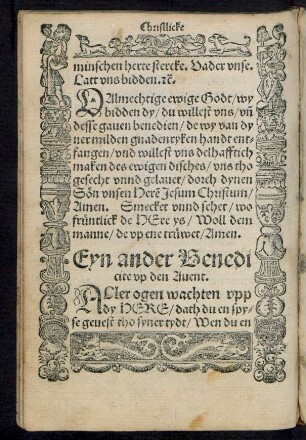 Christlicke
minschen herte stercke. Vader vnse.
Latt vns bidden. ꝛc̄.
O Allmechtige ewige Godt / wy
bidden dy / du willest vns / vñ
desse gauen benedien / de wy van dy
ner milden gnadenryken handt ent-
fangen / vnd willest vns delhafftich
maken des ewigen disches / vns tho
gesecht vnnd gelauet / dorch dynen
Sön vnsen Herē Jesum Christum /
Amen. Smecket vnnd sehet / wo
früntlick de HEre ys / Woll dem
manne / de vp ene trüwet / Amen.
Eyn ander Benedi
cite vp den Auent.
ALler ogen wachten vpp
dy HERE / dath du en spy-
se geuest tho syner tydt / Wen du en